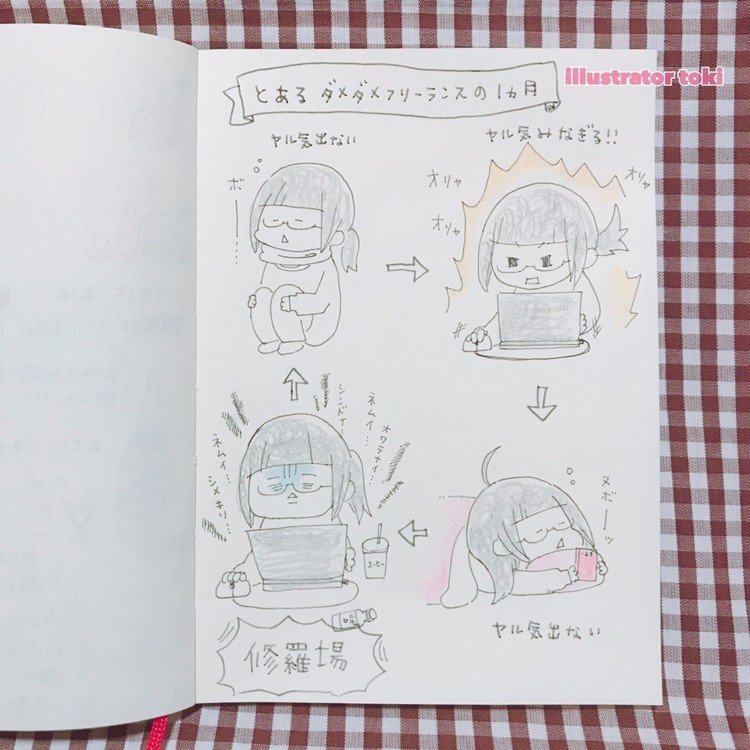 illustrator toki
とある ダメダメフリーランスの1ヵ月
ヤル気出ない
ボーーー…
ヤル気みなぎる!!
オリャ
オリャ
オリャ
ヌボーーッ
ヤル気出ない
ネムイ…
シメキリ…
シンドイ…
ネムイ…
オワラナイ…
コーヒー
修羅場